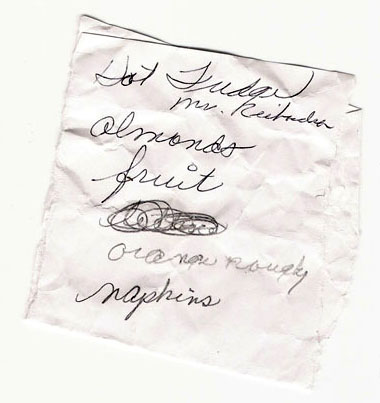 Hot Fudge
mr.
almonds
fruit
orange roughy
napkins